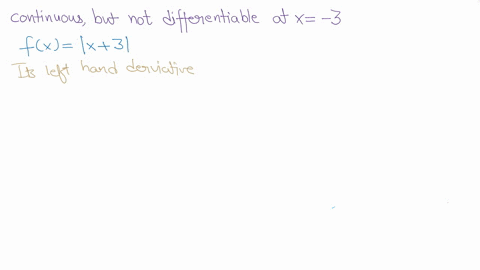 continuous, but not differentiable at x = -3
f(x) = |x+3|
Its left hand derviative